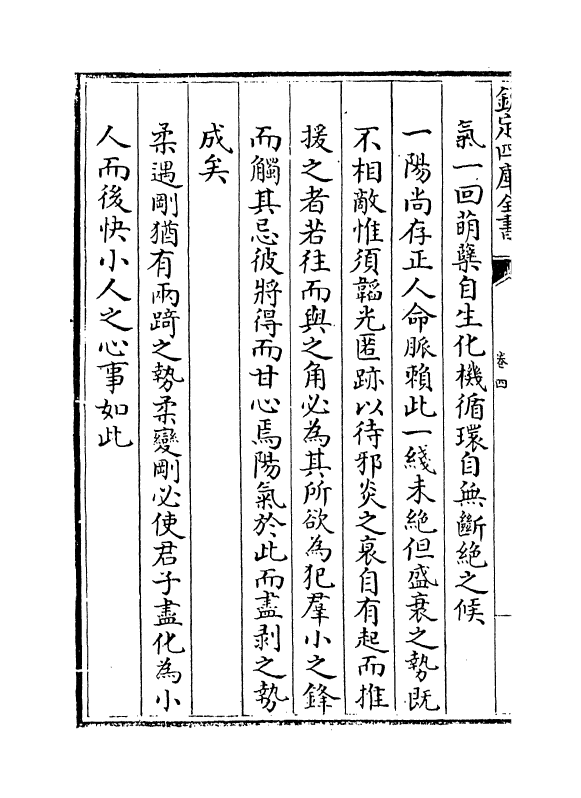 欽定四庫全書
卷四
氣一回萌蘖自生化機循環自無斷絶之候
一陽尚存正人命脈賴此一綫未絶但盛衰之勢既
不相敵惟須韜光匿跡以待邪炎之衰自有起而推
援之者若往而與之角必為其所欲為犯羣小之鋒
而觸其忌彼將得而甘心焉陽氣於此而盡剥之勢
成矣
柔遇剛猶有兩踦之勢柔變剛必使君子盡化為小
人而後快小人之心事如此